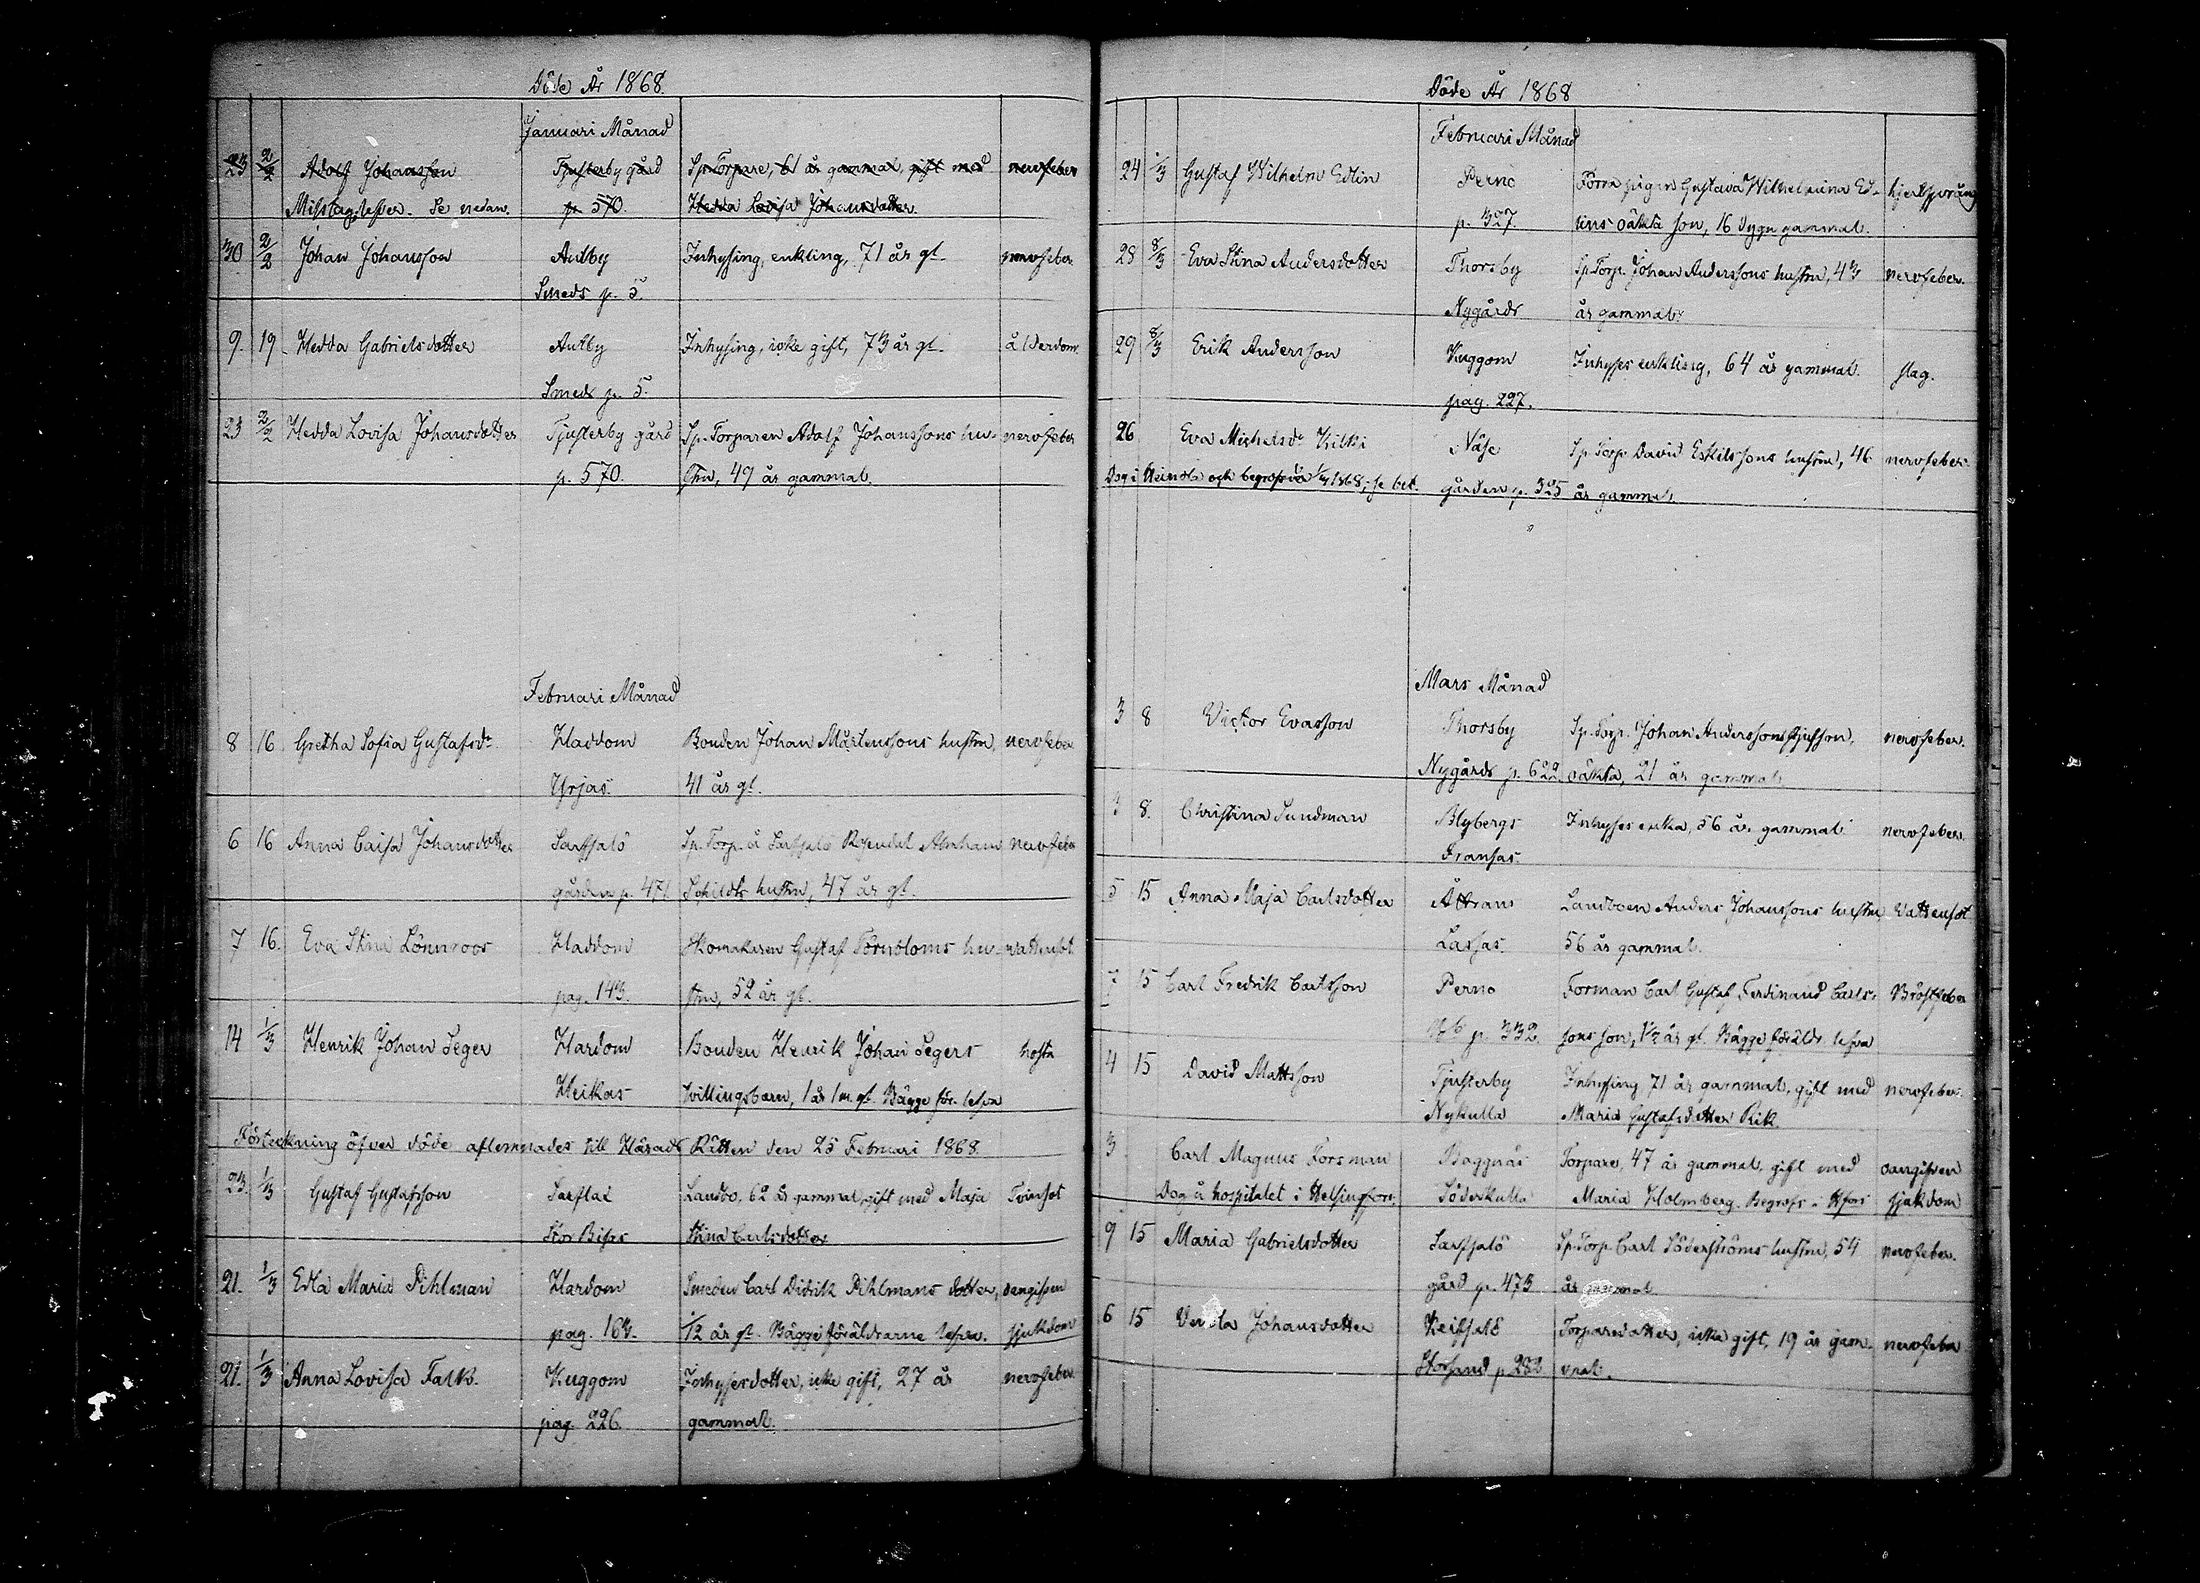 Döde År 1868.
Januari Månad
23 2/2 Adolf Johansson Tjusterby gård Sp. Torpare, 61 år gammal, gift med nervfeber
Misstag, Se nedan. p. 570. Hedda Lovisa Johansdotter.
30 2/2 Johan Johansson Antby Inhysing, enkling, 71 år gl. nervfeber
Smeds p. 5.
9. 19. Hedda Gabrielsdotter Antby Inhysing, icke gift, 73 år gl. ålderdom.
Smeds p. 5.
23 2/2 Hedda Lovisa Johansdotter Tjusterby gård Sp. Torparen Adolf Johanssons hu- nervfeber
p. 570. stru, 49 år gammal.
Februari Månad
8 16 Gretha Sofia Gustafsdr Haddom Bonden Johan Mårtenssons hustru, nervfeber
Yrjas 41 år gl.
6 16 Anna Caisa Johansdotter Sarfsalö Sp. Torp. å Sarfsalö Rosendal Abraham nervfeber
gården p. 471. Schildts hustru, 47 år gl.
7 16. Eva Stina Lönnroos Haddom Skomakaren Gustaf Törnbloms hu- vattusot
pag. 143. stru, 52 år gl.
14 1/3 Henrik Johan Seger Hardom Bonden Henrik Johan Segers hosta
Heikas tvillingsbarn, 1 år 1 m. gl. Bägge för. lefva
Förteckning öfver döde aflemnades till Härads Rätten den 25 Februari 1868.
23. 1/3 Gustaf Gustafsson Sarflax Landbo, 62 år gammal, gift med Maja Tvinsot
Stor Bises Stina Carlsdotter
21. 1/3 Edla Maria Pihlman Hardom Smeden Carl Didrik Pihlmans dotter, oangifven
pag. 163. 1/12 år gl. Bägge föräldrarne lefva. sjukdom
21. 1/3 Anna Lovisa Falk. Kuggom Inhysesdotter, icke gift, 27 år nervfeber.
pag. 226. gammal.
Döde År 1868
Februari Månad
24 1/3 Gustaf Wilhelm Edlin Perno Förra pigan Gustava Wilhelmina Ed-
p. 327. lins oäkta son, 16 dygn gammal.
28 8/3 Eva Stina Andersdotter Thorsby Sp. Torp. Johan Anderssons hustru, 43 nervfeber.
Nygårds år gammal.
29 8/3 Erik Andersson Kuggom Inhyses enkling, 64 år gammal. slag.
pag. 227.
26 Eva Michelsdr Kilki Näse Sp. Torp. David Eskilssons hustru, 46 nervfeber.
Dog i Heinola och begrofs 1868, se bet. gården p. 385 år gammal.
Mars Månad
3 8 Victor Evasson Thorsby Sp. Torp. Johan Anderssons styfson, nervfeber.
Nygårds p. 622. oäkta, 21 år gammal.
3 8. Christina Sundman Blybergs Inhyses enka, 56 år gammal nervfeber.
Fransas.
5 15 Anna Maja Carlsdotter Åttrans Landboen Anders Johanssons hustru, Vattusot.
Lassas. 56 år gammal.
15 Carl Fredrik Carlsson Perno Forman Carl Gustaf Ferdinand Carls- Bröstfeber
p. 332. sons son, 1 1/2 år gl. Bägge föräldr. lefva
4 15 David Mattsson Tjusterby Inhysing 71 år gammal, gift med nervfeber.
Nykulla Maria Gustafsdotter Rik.
3 Carl Magnus Forsman Baggnäs Torpare, 47 år gammal, gift med oangifven
Dog å hospitalet i Helsingfors. Söderkulla Maria Holmberg. Begrofs i Hfors sjukdom
9 15 Maria Gabrielsdotter Sarfsalö Sp. Torp. Carl Söderströms hustru, 54 nervfeber.
gård p. 473 år gammal
6 15 Johansdotter Keifsalö Torparedotter, icke gift, 19 år gam- nervfeber
Storsand p. 282 mal.